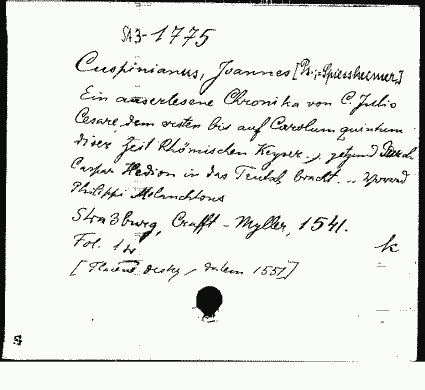 SA3-1775
Cuspinianus, Joannes [Ps.:-Spiessheimer]
Ein auserlesene Chronika von C. Julio
Cesare, dem ersten bis auf Carolum quintum
diser Zeit Rhömischen Keyser .., yetzund Durch
Caspar Hedion in das Teutsch bracht. .. Vorred
Philippi Melanchtons
Straßburg, Crafft-Myller, 1541.
Fol. 1
k
[ desky, 1551]
S